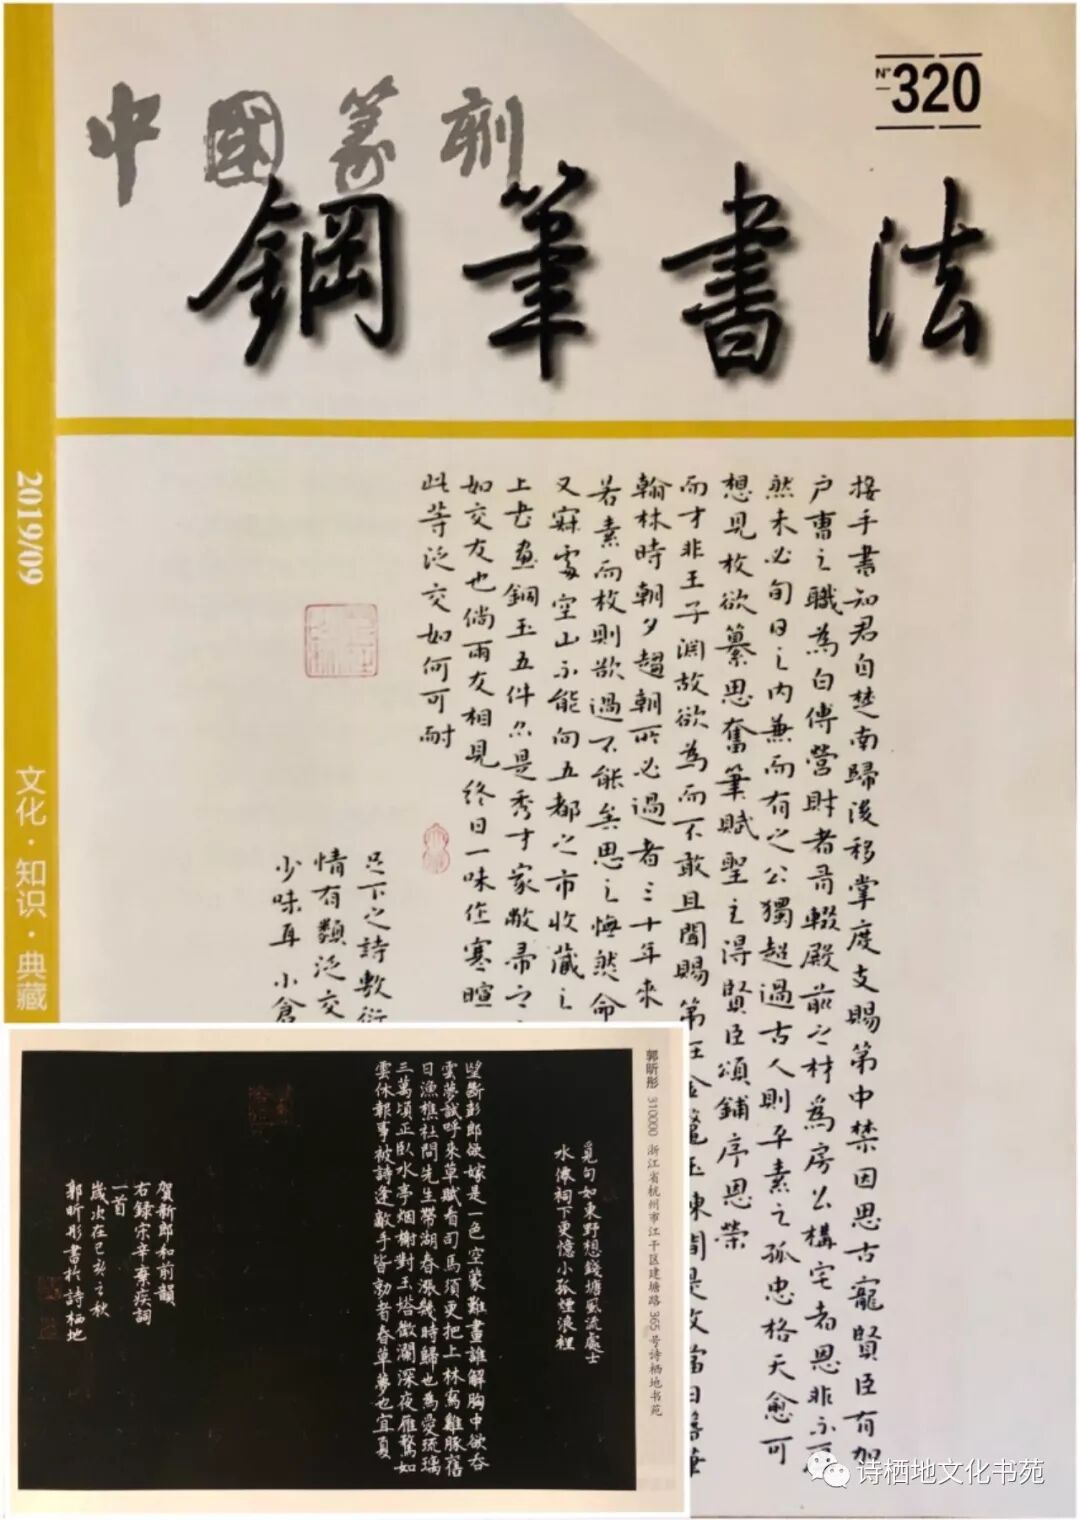 中國篆刻
Nº 320
鋼筆書法
2019/09
文化·知识·典藏
接手書知君自楚南歸後移掌度支賜第中禁因思古寵賢臣有加
户曹之職為白傅營財者哥輟殿前之材為房公構宅者恩非不
然未必旬日之内兼而有之公獨超過古人則平素之孤忠格天愈可
想見枚欲纂思奮筆賦聖主得賢臣頌鋪序恩榮
而才非王子淵故欲為而不敢且聞賜第在金鰲玉蝀間是枚當日舊
翰林時朝夕趨朝所必過者三十年来
若素而枚則欲過不能矣思之悔然命
又寐處空山不能向五都之市收藏之
上老畫銅玉五件尔是秀才家敝帚之
如交友也倘兩友相見終日一味作寒暄
此等泛交如何可耐
足下之詩敷衍
情有類泛交
少味耳小倉
郭昕彤 310000 浙江省杭州市江干区建塘路365号诗栖地书苑
覓句如東野想錢塘風流處士
水僊祠下更憶小孤煙浪裡
望斷彭郎欲嫁是一色空蒙難畫誰解胸中欲吞
雲夢試呼來草賦看司馬須更把上林寫雞豚舊
日漁樵社問先生帶湖春漲幾時歸也為愛琉璃
三萬頃正臥水亭烟榭對玉塔微瀾深夜雁鶩如
雲休報事被詩逢敵手皆勍者春草夢也宜夏
賀新郎和前韻
右録宋辛棄疾詞
一首
歲次在己亥之秋
郭昕彤書於詩栖地
诗栖地文化书苑